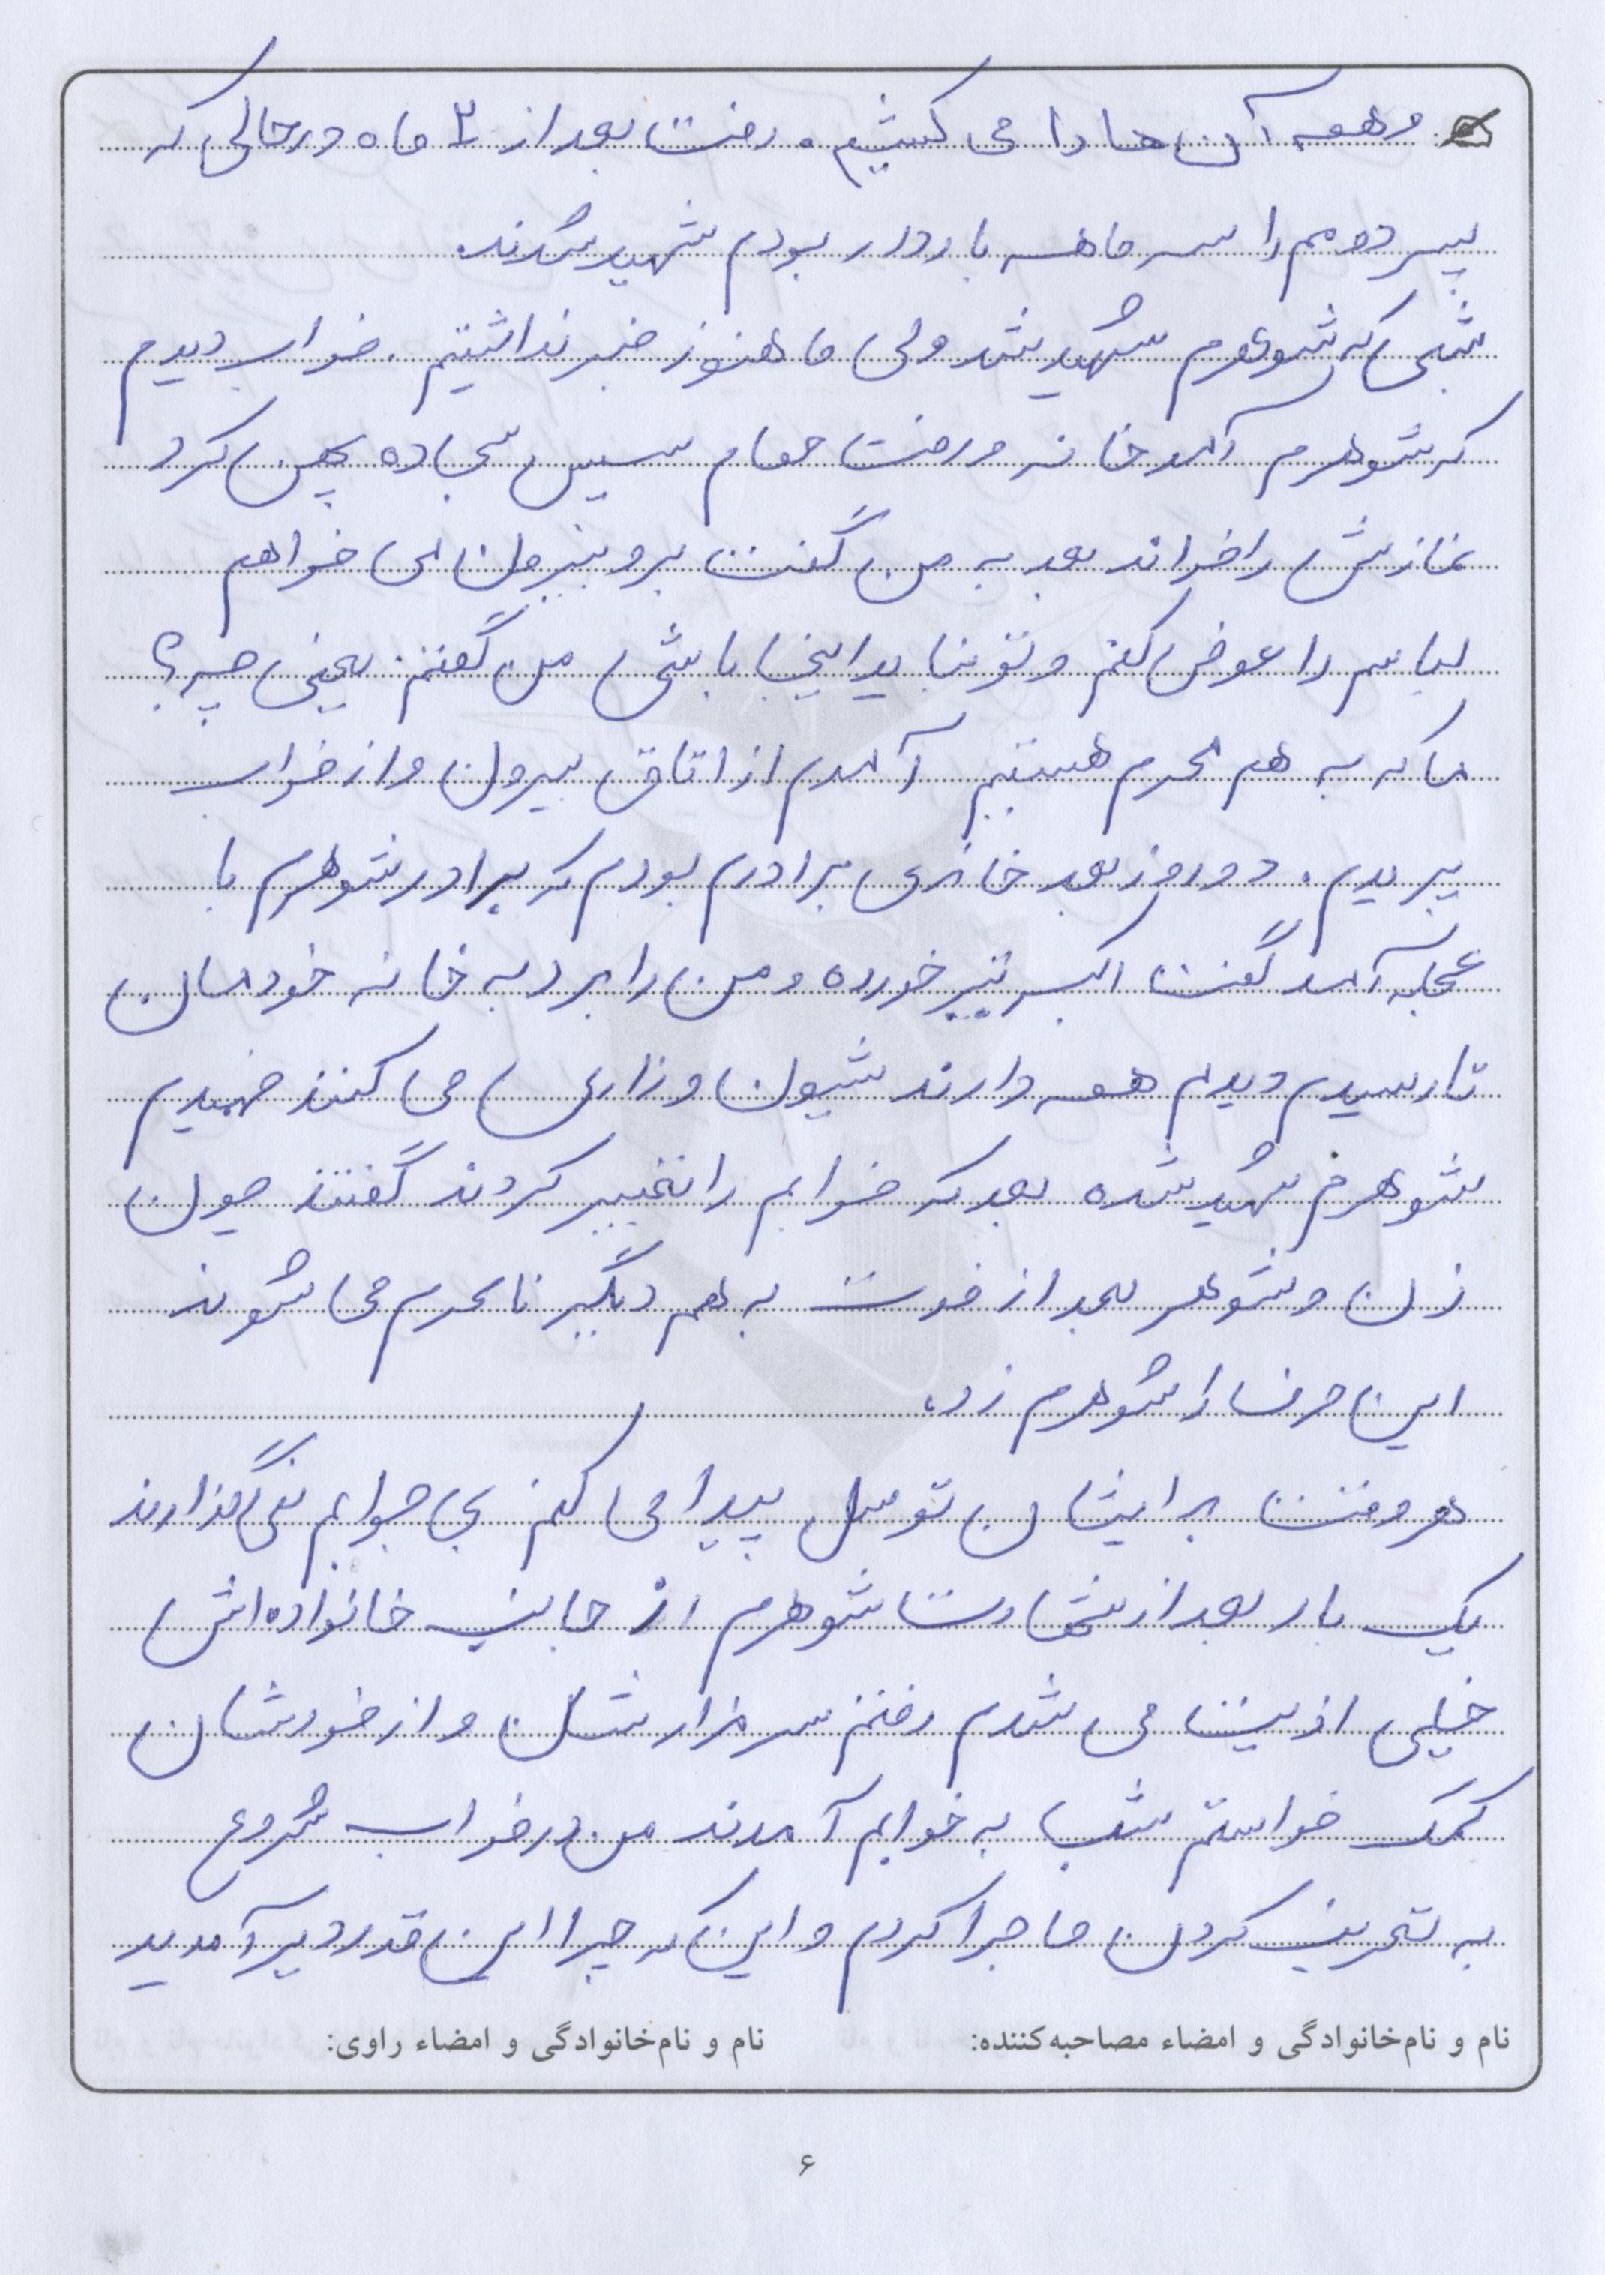 و همه آن ها را می کشیم. رفت بعد از ۲ ماه در حالی که
پسر دومم را سه ماهه باردار بودم شهید شدند.
شبی که شوهرم شهید شد ولی ما هنوز خبر نداشتیم. خواب دیدم
که شوهرم آمد خانه و رفت حمام سپس سجاده پهن کرد
نمازش را خواند بعد به من گفت برو بیرون می خواهم
لباسم را عوض کنم و تو نباید اینجا باشی من گفتم یعنی چه؟
ما که به هم محرم هستیم آمدم از اتاق بیرون و از خواب
پریدم. دو روز بعد خانه‌ی برادرم بودم که برادر شوهرم با
عجله آمد گفت اکبر تیر خورده و من را برد به خانه خودمان
تا رسیدم دیدم همه دارند شیون و زاری می کنند فهمیدم
شوهرم شهید شده بعد که خوابم را تعبیر کردند گفتند چون
زن و شوهر بعد از فوت به هم دیگر نامحرم می شوند
این حرف را شوهرم زد.
هر وقت برایشان توسل پیدا می کنم بی جوابم نمی گذارند
یک بار بعد از شهادت شوهرم از جانب خانواده اش
خیلی اذیت می شدم رفتم سر مزارشان و از خودشان
کمک خواستم شب به خوابم آمدند من در خواب شروع
به تعریف کردن ماجرا کردم و این که چرا این قدر دیر آمدید
نام و نام‌خانوادگی و امضاء مصاحبه‌کننده: نام و نام‌خانوادگی و امضاء راوی:
۶